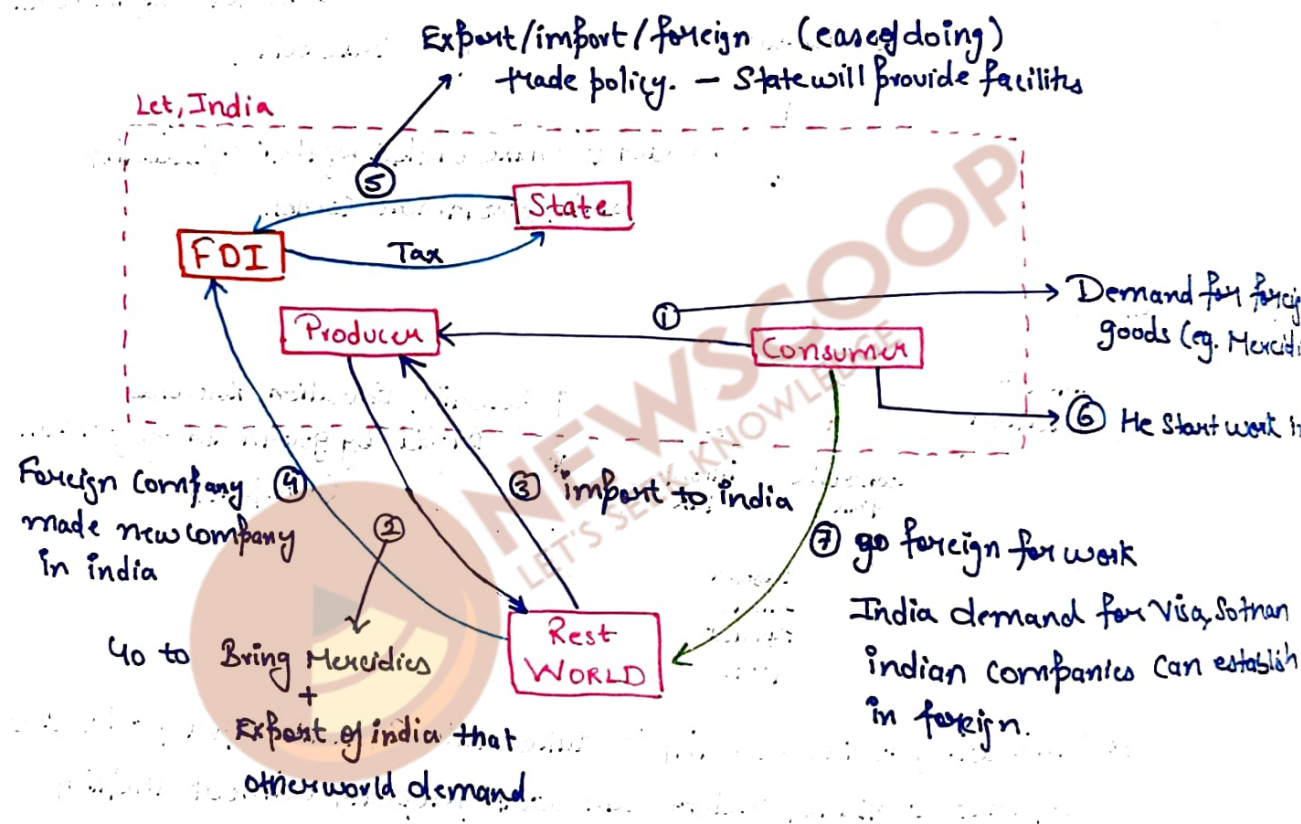 Export/import/foreign (ease of doing)
trade policy. — State will provide facilitis
Let, India
⑤
State
FDI
Tax
①
Demand for foreig
goods (eg. Mercidi
Producer
Consumer
⑥ He start work i
Foreign Company ④
made new company
in india
③ import to india
②
⑦ go foreign for work
India demand for Visa, Sothan
indian companies can establish
in foreign.
Go to Bring Mercidies
+
Export of india that
otherworld demand.
Rest
WORLD
NEWSCOOP
LET'S SEEK KNOWLEDGE